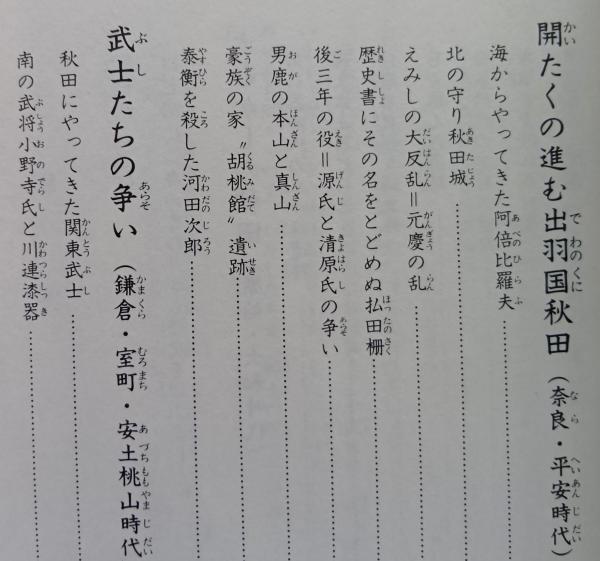 開たくの進む出羽国秋田（奈良・平安時代）
海からやってきた阿倍比羅夫
北の守り秋田城
えみしの大反乱＝元慶の乱
歴史書にその名をとどめぬ払田柵
後三年の役＝源氏と清原氏の争い
男鹿の本山と真山
豪族の家〝胡桃館〟遺跡
泰衡を殺した河田次郎
武士たちの争い（鎌倉・室町・安土桃山時代
秋田にやってきた関東武士
南の武将小野寺氏と川連漆器